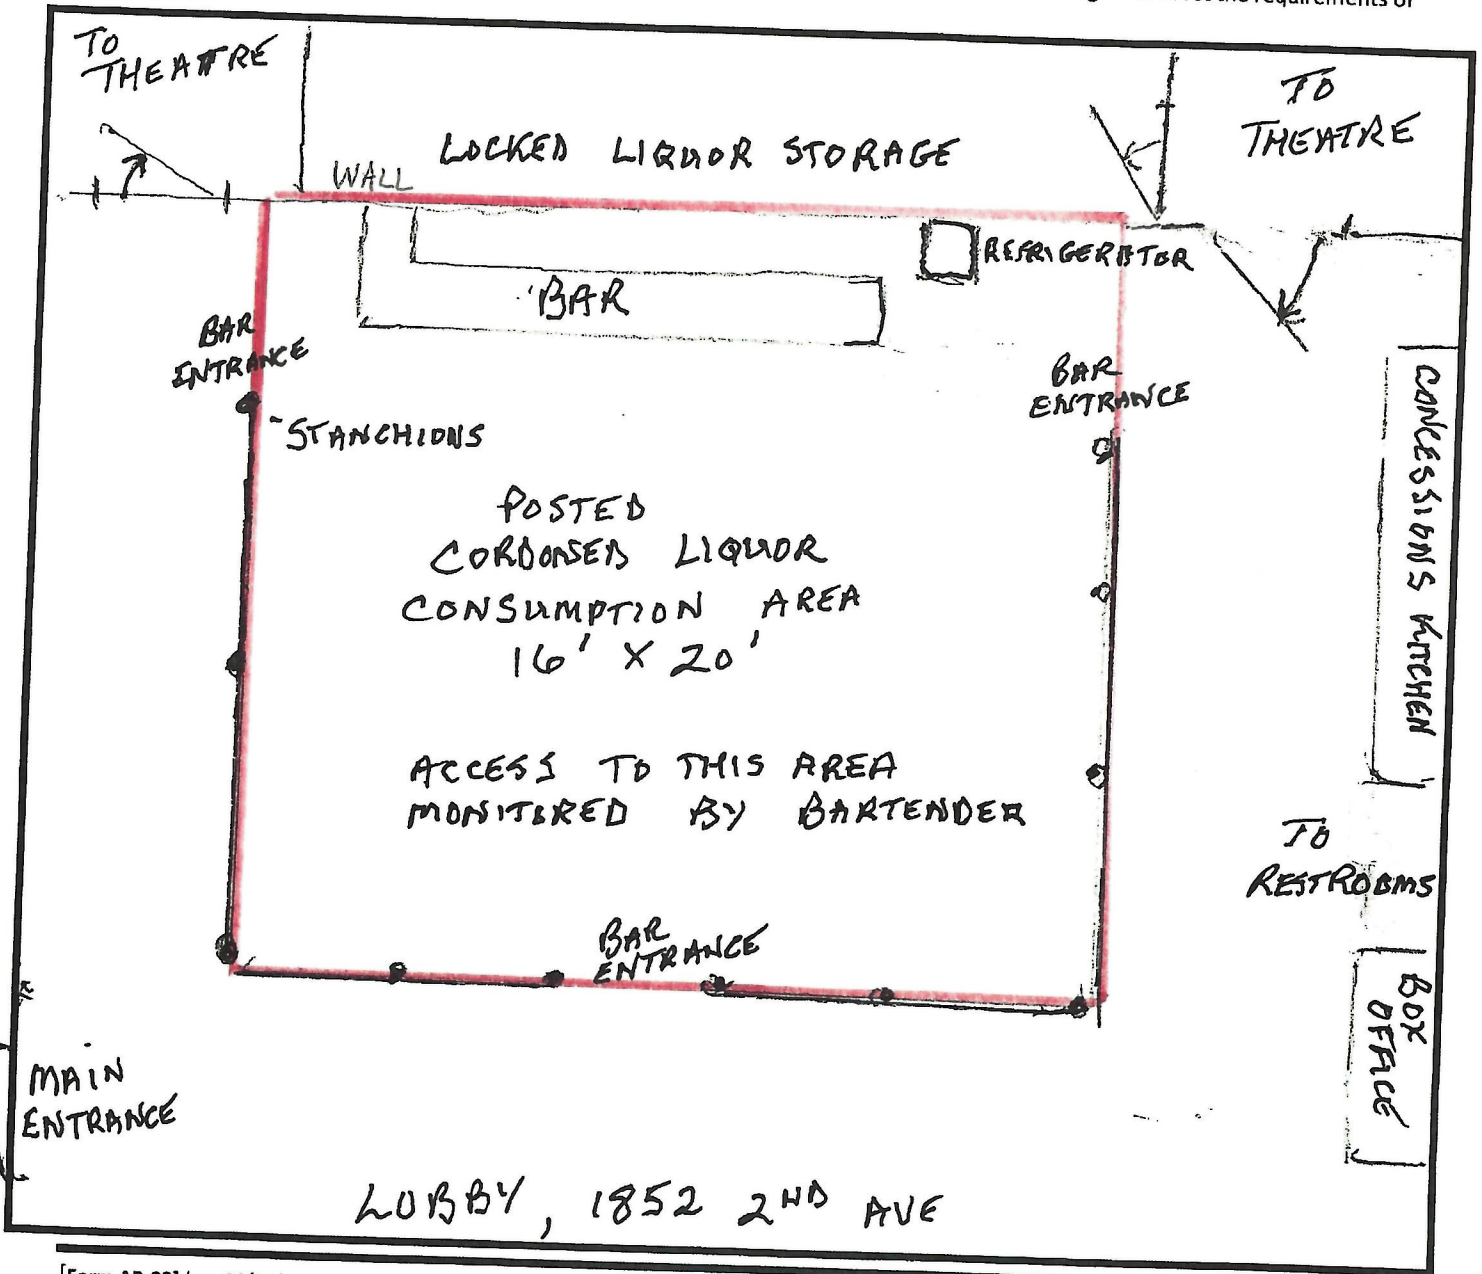 the requirements of
TO
THEATRE
TO
THEATRE
LOCKED LIQUOR STORAGE
WALL
REFRIGERATOR
BAR
BAR
ENTRANCE
BAR
ENTRANCE
STANCHIONS
CONCESSIONS KITCHEN
POSTED
CORDONED LIQUOR
CONSUMPTION AREA
16' X 20'
ACCESS TO THIS AREA
MONITORED BY BARTENDER
TO
RESTROOMS
BAR
ENTRANCE
BOX
OFFICE
MAIN
ENTRANCE
LOBBY, 1852 2ND AVE